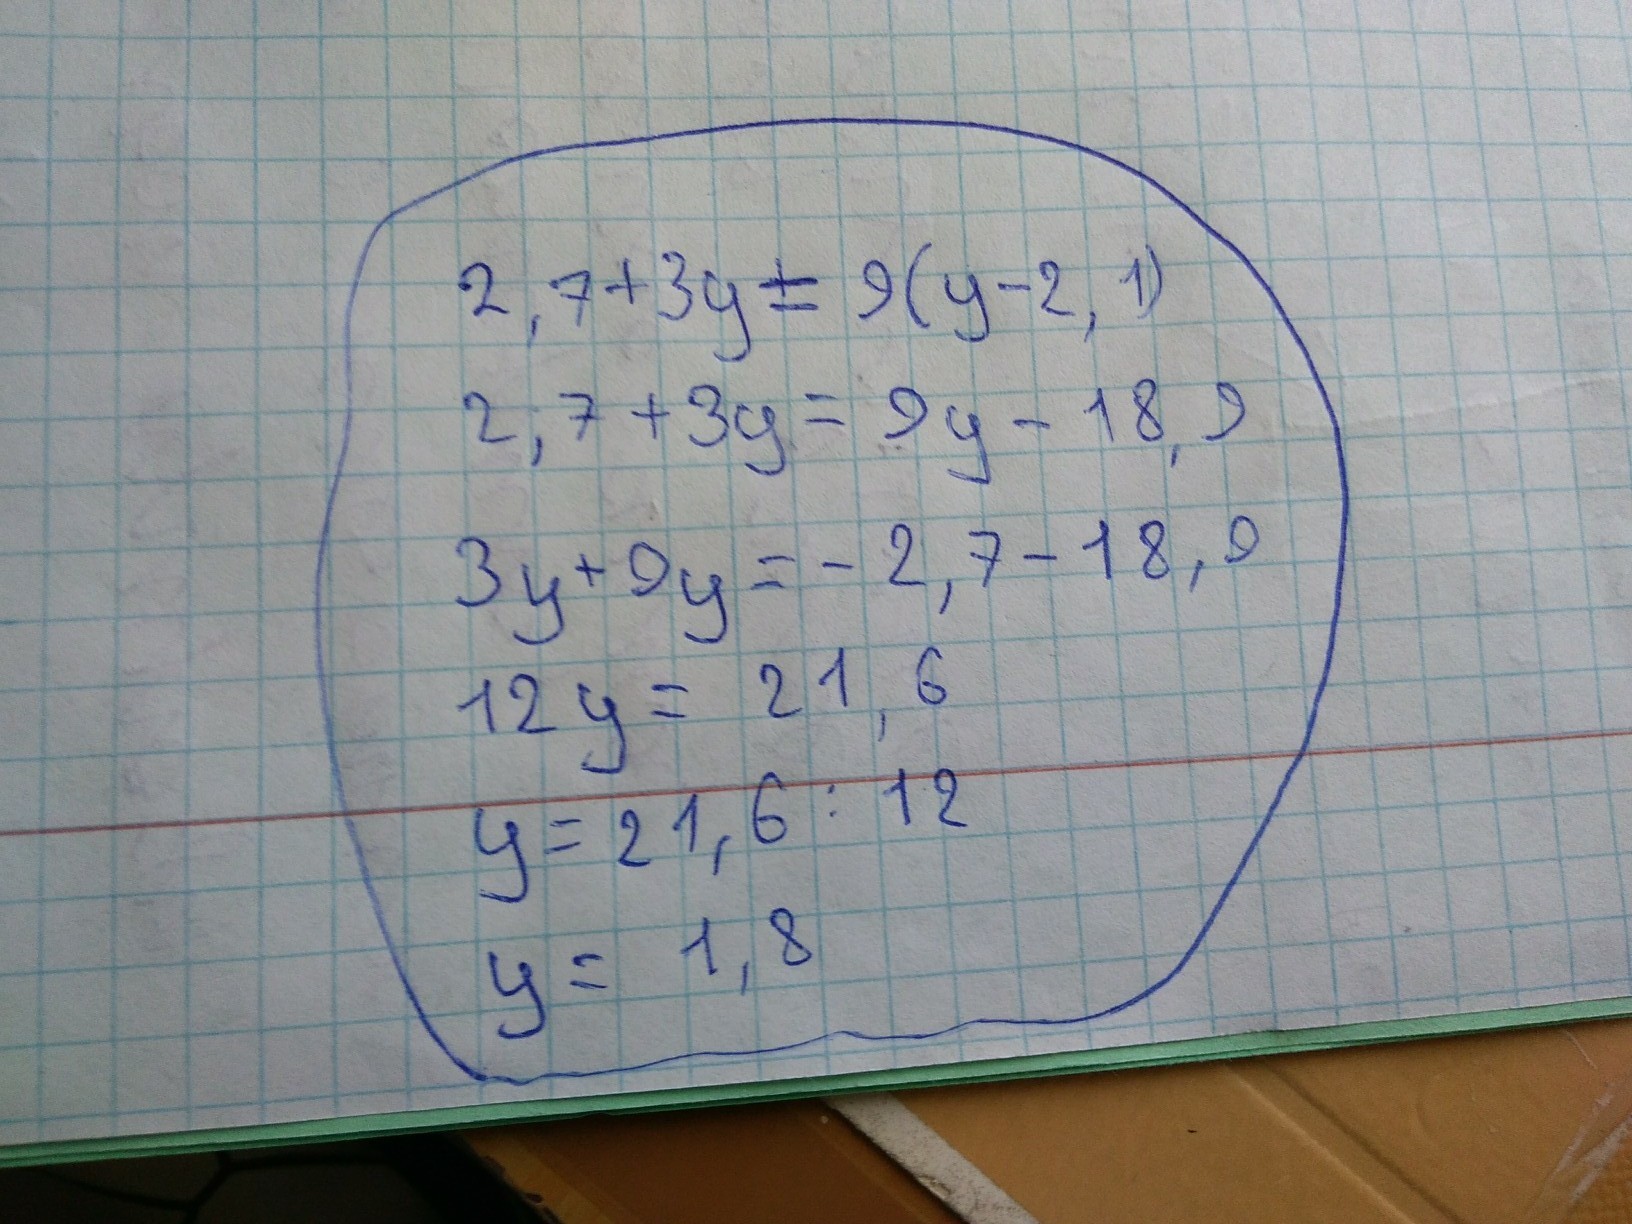 2,7+3y= 9(y-2,1)
2,7+3y=9y-18,9
3y+9y=-2,7-18,9
12y=21,6
y=21,6:12
y=1,8